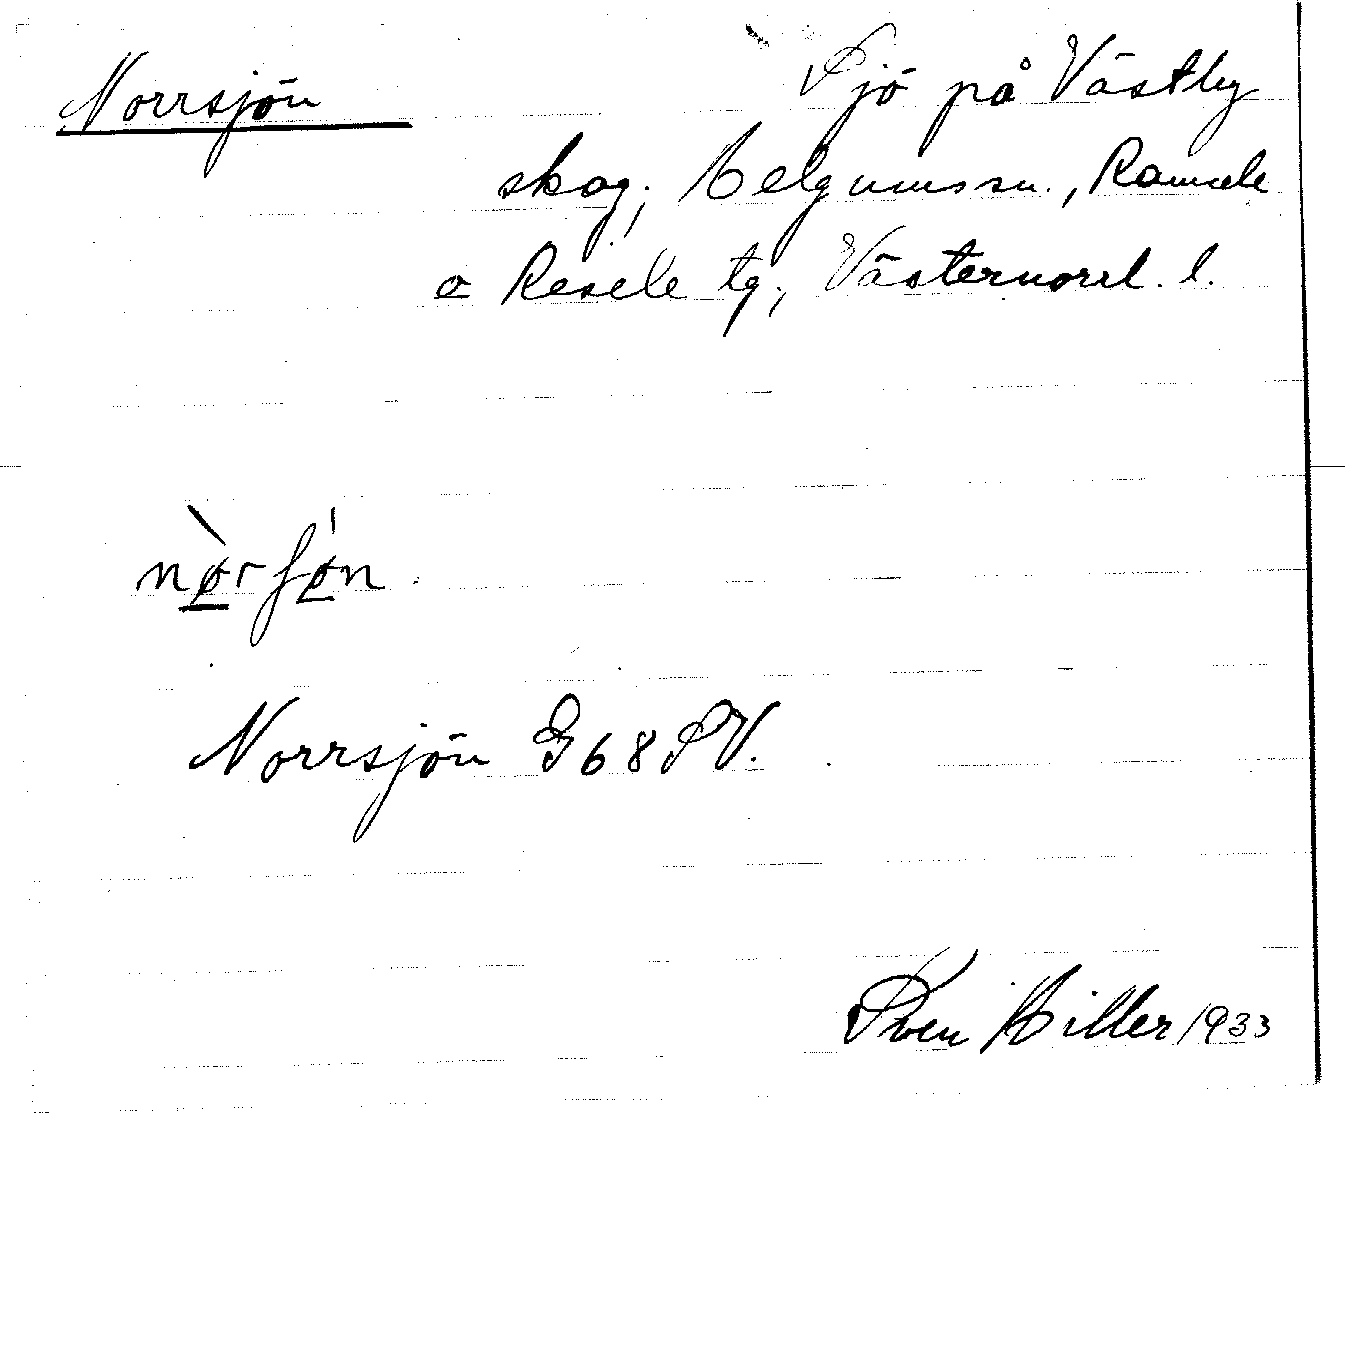 Norrsjön Sjö på Västby
skog, Helgums sn., Ramsele
o Resele tg., Västernorrl. l.
nø̀rʃø̍n.
Norrsjön G68SV.
Sven Hiller 1933